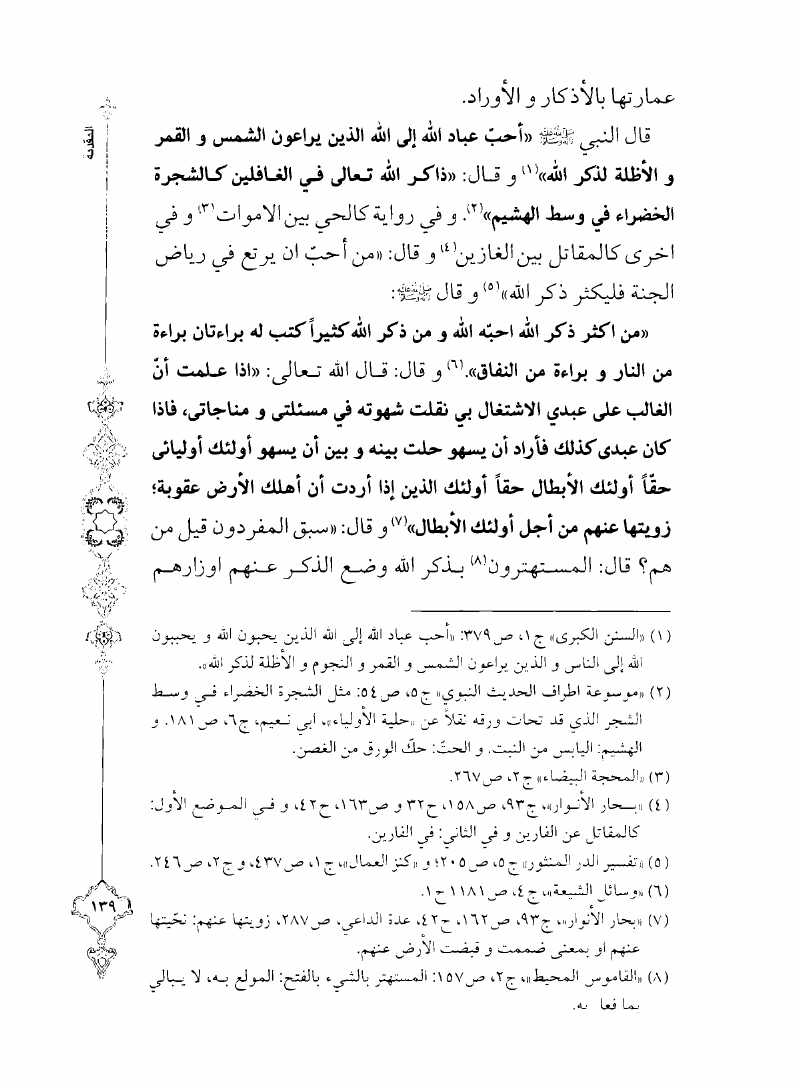 عمارتها بالأذكار و الأوراد.
قال النبي ﷺ «أحبّ عباد الله إلى الله الذين يراعون الشمس و القمر
و الأظلة لذكر الله»(١) و قـال: «ذاكـر الله تـعالى فـي الغـافلين كـالشجرة
الخضراء في وسط الهشيم»(٢). و في رواية كالحي بين الاموات(٣) و في
اخرى كالمقاتل بين الغازين(٤) و قال: «من أحبّ ان يرتع في رياض
الجنة فليكثر ذكر الله»(٥) و قال ﷺ:
«من اكثر ذكر الله احبّه الله و من ذكر الله كثيراً كتب له براءتان براءة
من النار و براءة من النفاق».(٦) و قال: قـال الله تـعالى: «اذا عـلمت أنّ
الغالب على عبدي الاشتغال بي نقلت شهوته في مسئلتى و مناجاتى، فاذا
كان عبدى كذلك فأراد أن يسهو حلت بينه و بين أن يسهو أولئك أوليائى
حقّاً أولئك الأبطال حقاً أولئك الذين إذا أردت أن أهلك الأرض عقوبة؛
زويتها عنهم من أجل أولئك الأبطال»(٧) و قال: «سبق المفردون قيل من
هم؟ قال: المسـتهترون(٨) بـذكر الله وضـع الذكـر عـنهم اوزارهـم
(١) «السنن الكبرى» ج١، ص٣٧٩: «أحب عباد الله إلى الله الذين يحبون الله و يحببون
الله إلى الناس و الذين يراعون الشمس و القمر و النجوم و الأظلة لذكر الله».
(٢) «موسوعة اطراف الحديث النبوي» ج٥، ص٥٤: مثل الشجرة الخضراء فـي وسـط
الشجر الذي قد تحات ورقه نقلاً عن «حلية الأولياء»، ابي نـعيم، ج٦، ص١٨١. و
الهشيم: اليابس من النبت. و الحتّ: حكّ الورق من الغصن.
(٣) «المحجة البيضاء» ج٢، ص٢٦٧.
(٤) «بـحار الأنـوار»، ج٩٣، ص١٥٨، ح٣٢ و ص١٦٣، ح٤٢، و فـي المـوضع الأول:
كالمقاتل عن الفارين و في الثاني: في الفارين.
(٥) «تفسير الدر المنثور» ج٥، ص٢٠٥؛ و «كنز العمال»، ج١، ص٤٣٧، و ج٢، ص٢٤٦.
(٦) «وسائل الشيعة»، ج٤، ص١١٨١ ح١.
(٧) «بحار الأنوار»، ج٩٣، ص١٦٢، ح٤٢، عدة الداعي، ص٢٨٧، زويتها عنهم: نحّيتها
عنهم او بمعنى ضممت و قبضت الأرض عنهم.
(٨) «القاموس المحيط»، ج٢، ص١٥٧: المستهتر بالشيء بالفتح: المولع بـه، لا يـبالي
بما فعل به.
المقدمة
١٣٩